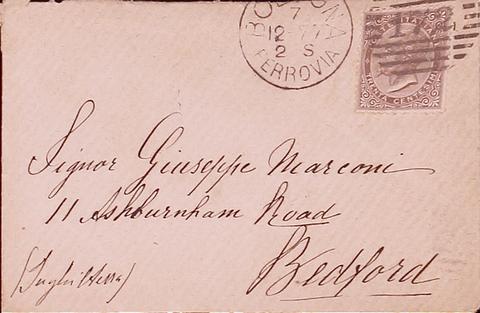 BOLOGNA
7
12-77
2 S
FERROVIA
TRENTA CENTESIMI
Signor Giuseppe Marconi
11 Ashburnham Road
Bedford
(Inghilterra)